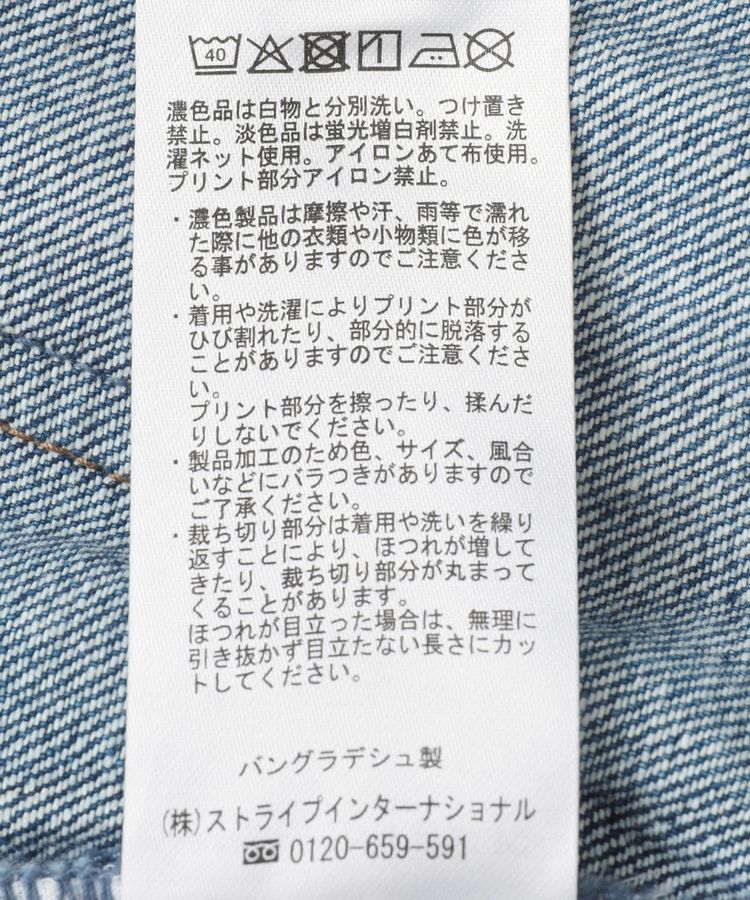 40
濃色品は白物と分別洗い。つけ置き
禁止。淡色品は蛍光増白剤禁止。洗
濯ネット使用。アイロンあて布使用。
プリント部分アイロン禁止。
・濃色製品は摩擦や汗、雨等で濡れ
た際に他の衣類や小物類に色が移
る事がありますのでご注意くださ
い。
・着用や洗濯によりプリント部分が
ひび割れたり、部分的に脱落する
ことがありますのでご注意くださ
い。
プリント部分を擦ったり、揉んだ
りしないでください。
・製品加工のため色、サイズ、風合
いなどにバラつきがありますので
ご了承ください。
・裁ち切り部分は着用や洗いを繰り
返すことにより、ほつれが増して
きたり、裁ち切り部分が丸まって
くることがあります。
ほつれが目立った場合は、無理に
引き抜かず目立たない長さにカッ
トしてください。
バングラデシュ製
(株)ストライプインターナショナル
0120-659-591